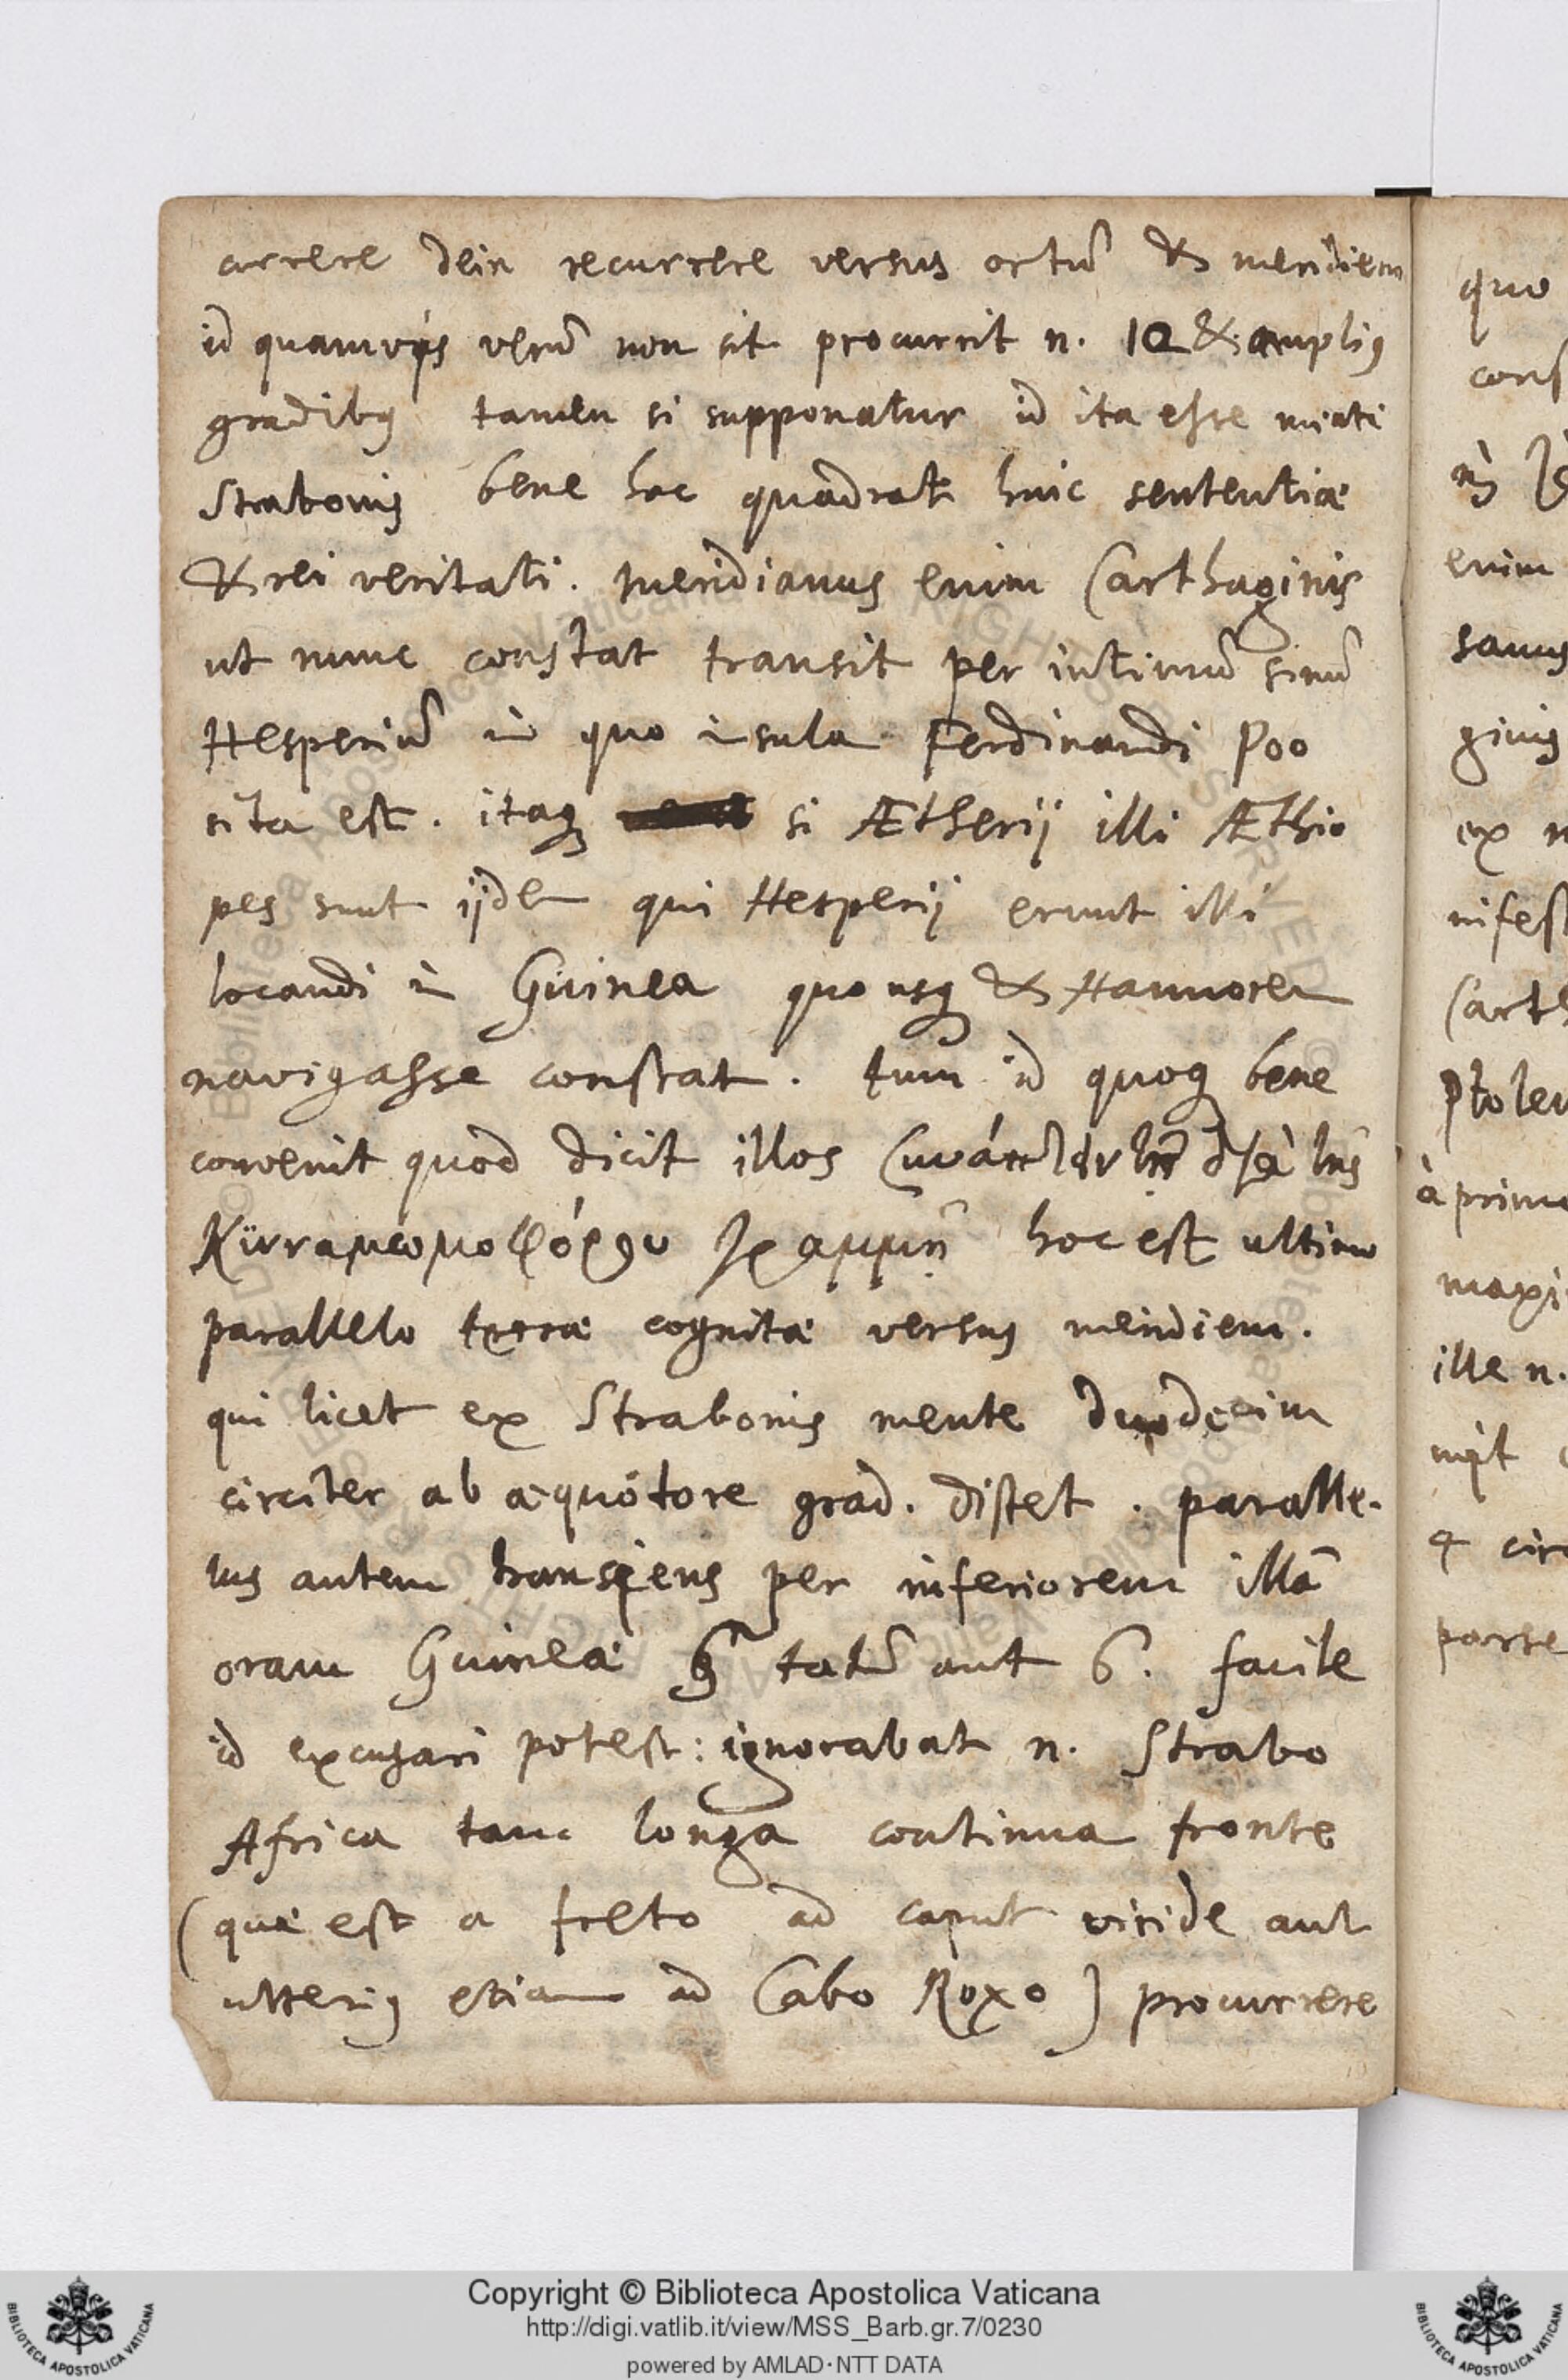 currere dein recurrere versus ortũ & meridiem quo
id quamvis verũ non sit procurrit n. 10 & ampliꝰ cons
gradibꝰ tamen si supponatur id ita esse menti
Strabonis bene hoc quadrat huic sententiæ
& rei veritati. Meridianus enim Carthaginis enim
ut nunc constat transit per intimũ sinũ samus
Hesperiũ in quo insula Ferdinandi Poo ginis
sita est. itaq si Ætherij illi Æthio ex n
pes sunt ijdem qui Hesperij erunt illi nifest
locandi in Guinea quousq & Hannonem Carth
navigasse constat. tum id quoq bene Ptolem
convenit quod dicit illos à prim
Κινναμωμοφόρου hoc est ultimo maxi
parallelo terræ cognitæ versus meridiem. ille n.
qui licet ex Strabonis mente duodecim
circiter ab æquatore grad. distet. paralle-
lus autem transiens per inferiorem illã
oram Guineæ tantũ aut 6. facile parte
id excusari potest: ignorabat n. Strabo
Africa tam longa continua fronte
(quæ est a freto ad caput viride aut
ulteriꝰ etiam ad Cabo Roxo) procurrere
Copyright © Biblioteca Apostolica Vaticana
http://digi.vatlib.it/view/MSS_Barb.gr.7/0230
powered by AMLAD·NTT DATA
BIBLIOTECA APOSTOLICA VATICANA
BIBLIOTECA APOSTOLICA VATICANA